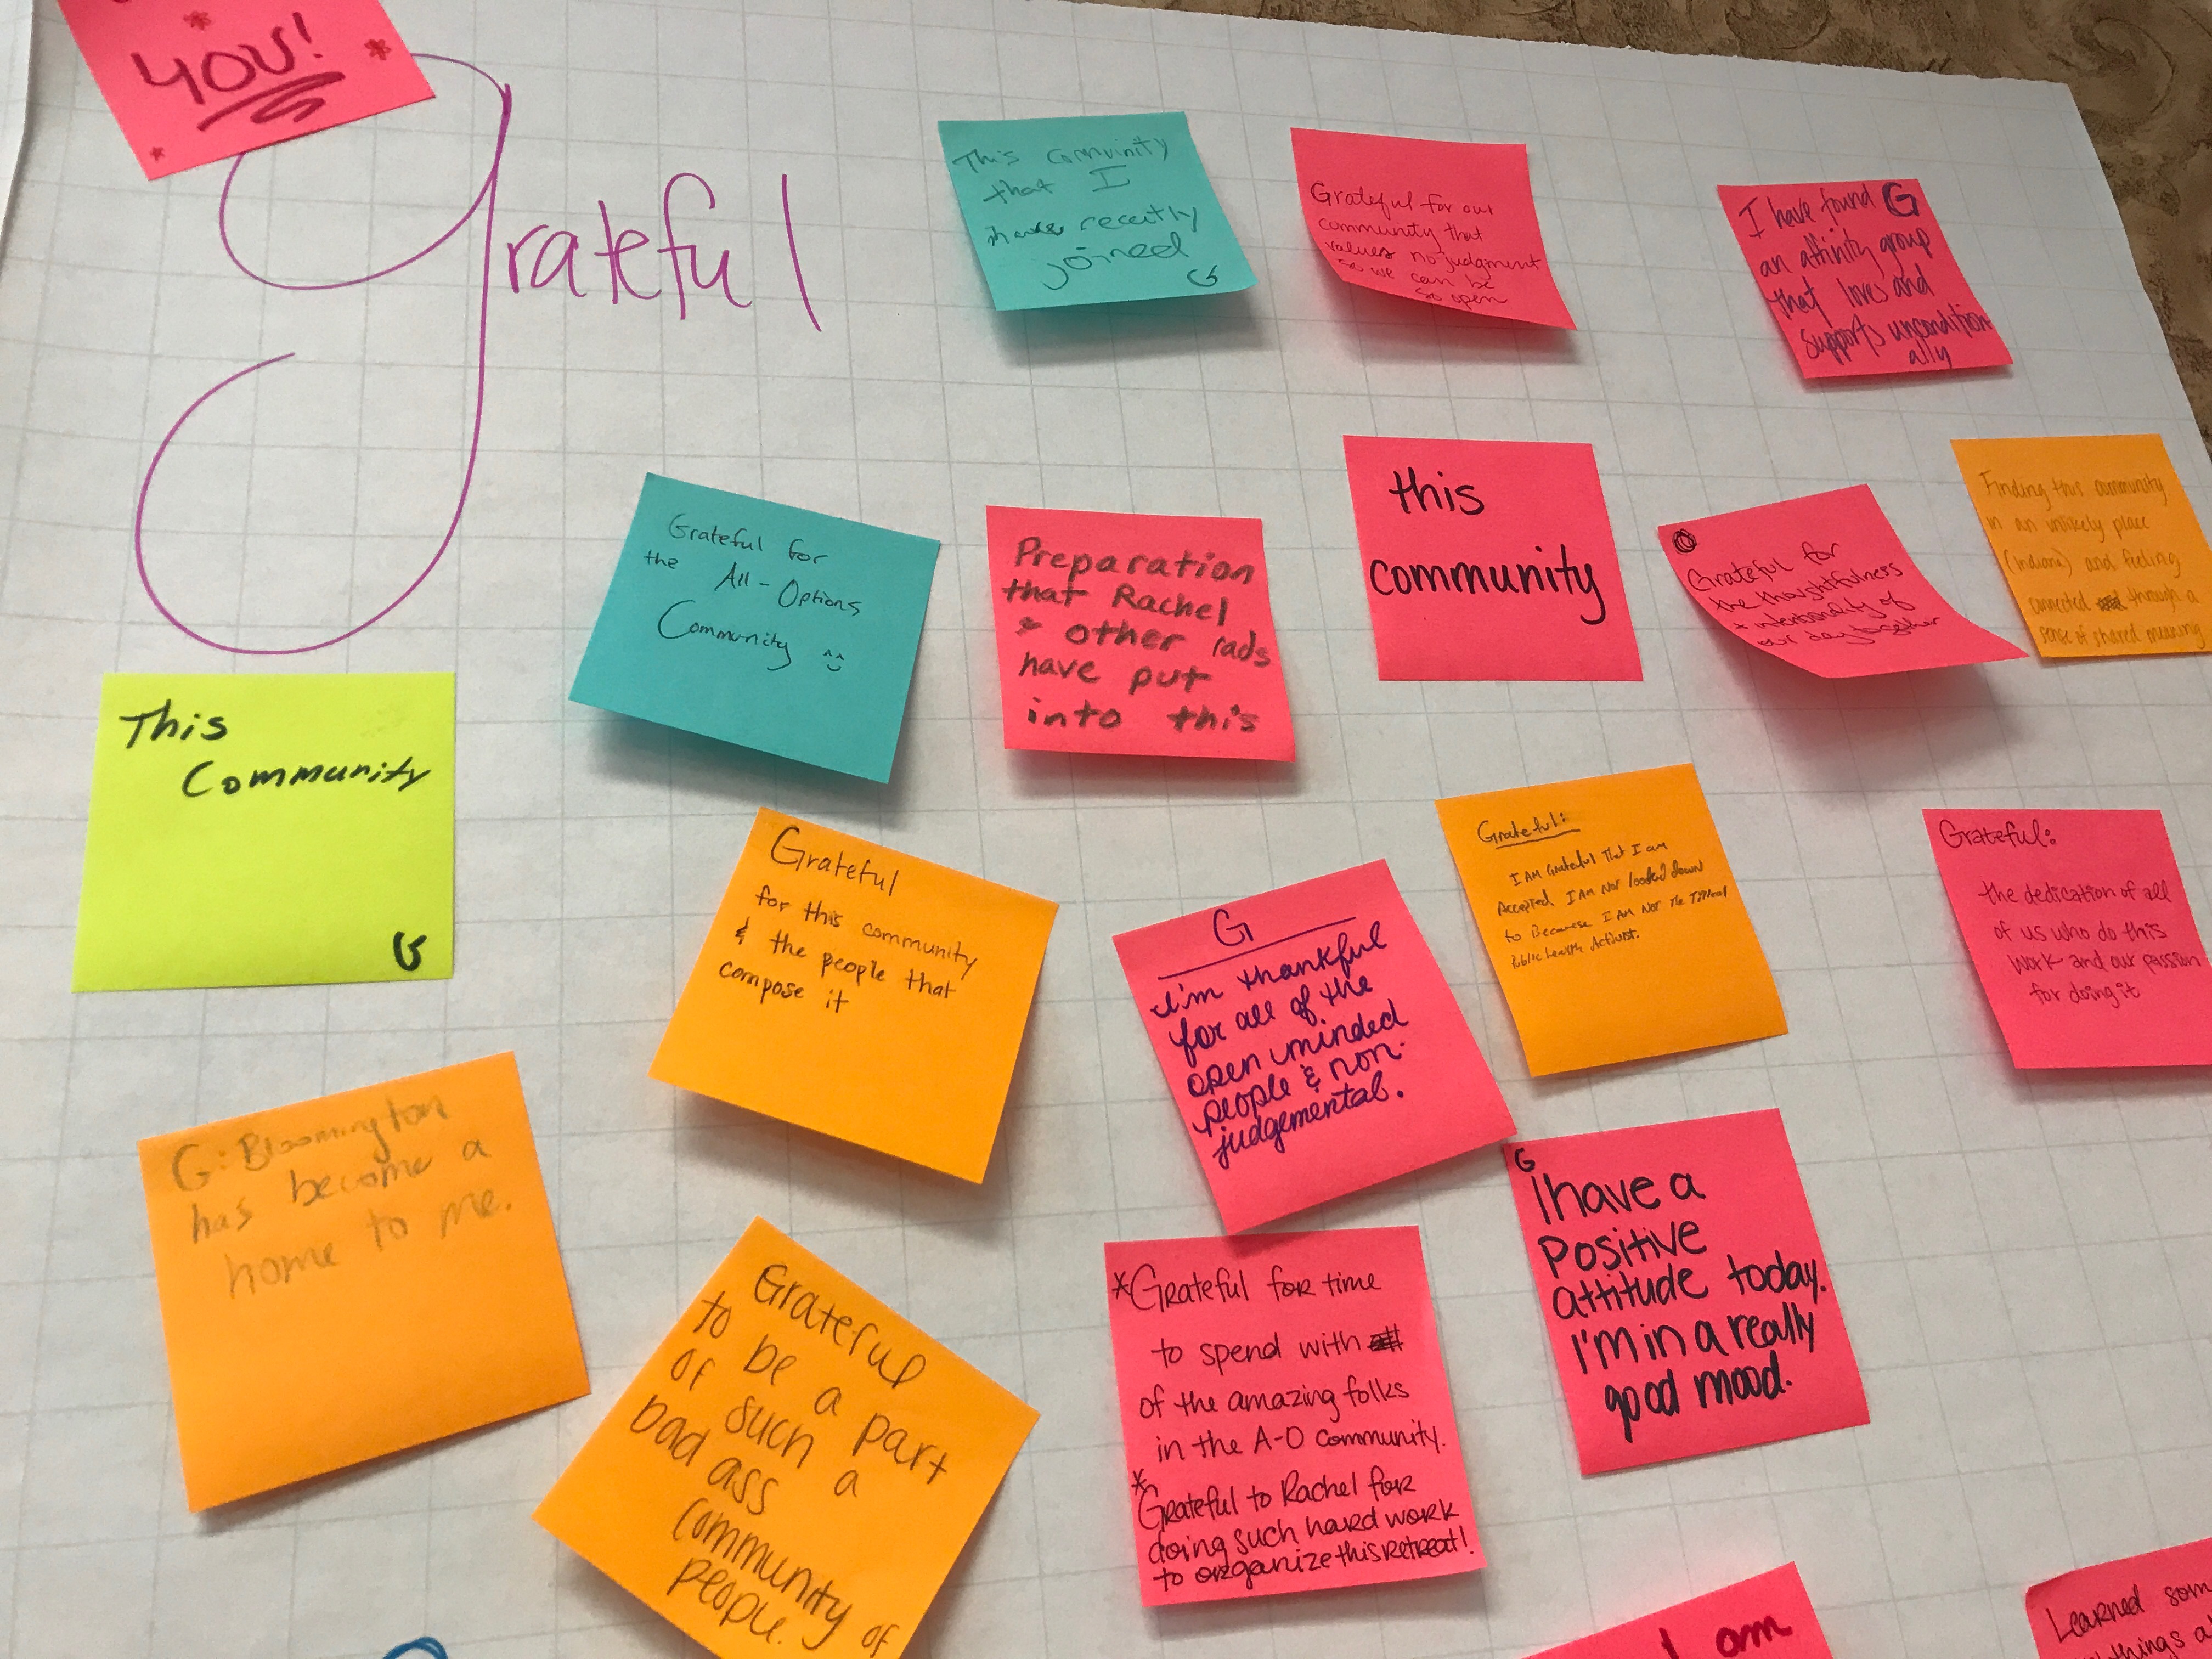 YOU!
grateful
This community
that I
have recently
joined
G
Grateful for our
community that
values no judgment
so we can be
so open
I have found G
an affinity group
that loves and
supports uncondition
ally
Grateful for
the All-Options
Community
Preparation
that Rachel
& other lads
have put
into this
this
community
Grateful for
the thoughtfulness
& intentionality of
our day together
Finding this community
in an unlikely place
(Indiana) and feeling
connected through a
sense of shared meaning
This
Community
G
Grateful
for this community
& the people that
compose it
G
I'm thankful
for all of the
open minded
people & non-
judgemental.
Grateful:
I AM Grateful That I am
Accepted. I AM Not looked down
to Because I AM Not The Typical
Public Health Activist.
Grateful:
the dedication of all
of us who do this
work and our passion
for doing it
G: Bloomington
has become a
home to me.
Grateful
to be a part
of such a
bad ass
community of
people.
*Grateful for time
to spend with
of the amazing folks
in the A-O community.
*Grateful to Rachel for
doing such hard work
to organize this retreat!
G
I have a
positive
attitude today.
I'm in a really
good mood.
I am
Learned som
things a